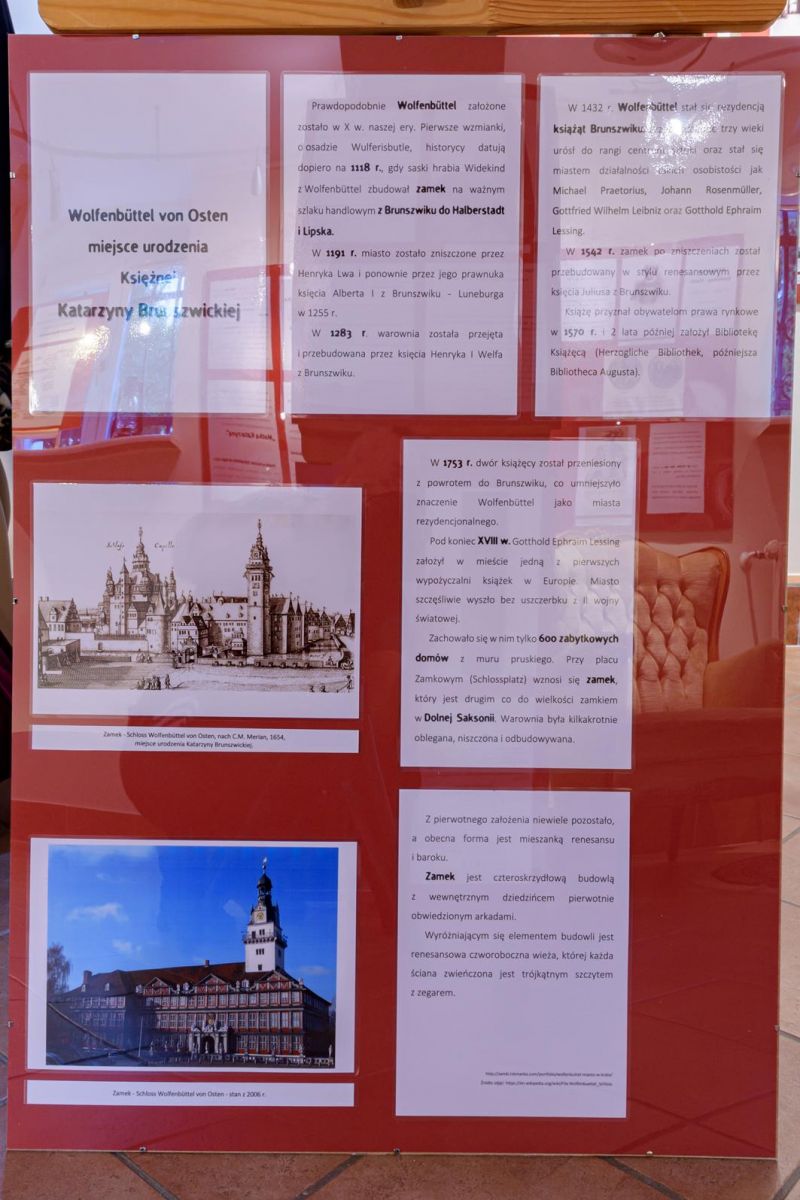 Wolfenbüttel von Osten
miejsce urodzenia
Księżnej
Katarzyny Brunszwickiej
Prawdopodobnie Wolfenbüttel założone
zostało w X w. naszej ery. Pierwsze wzmianki,
o osadzie Wulferisbutle, historycy datują
dopiero na 1118 r., gdy saski hrabia Widekind
z Wolfenbüttel zbudował zamek na ważnym
szlaku handlowym z Brunszwiku do Halberstadt
i Lipska.
W 1191 r. miasto zostało zniszczone przez
Henryka Lwa i ponownie przez jego prawnuka
księcia Alberta I z Brunszwiku - Luneburga
w 1255 r.
W 1283 r. warownia została przejęta
i przebudowana przez księcia Henryka I Welfa
z Brunszwiku.
W 1432 r. Wolfenbüttel stał się rezydencją
książąt Brunszwiku. trzy wieki
urósł do rangi oraz stał się
miastem działalności osobistości jak
Michael Praetorius, Johann Rosenmüller,
Gottfried Wilhelm Leibniz oraz Gotthold Ephraim
Lessing.
W 1542 r. zamek po zniszczeniach został
przebudowany w stylu renesansowym przez
księcia Juliusa z Brunszwiku.
Książę przyznał obywatelom prawa rynkowe
w 1570 r. i 2 lata później założył Bibliotekę
Książęcą (Herzogliche Bibliothek, późniejsza
Bibliotheca Augusta).
W 1753 r. dwór książęcy został przeniesiony
z powrotem do Brunszwiku, co umniejszyło
znaczenie Wolfenbüttel jako miasta
rezydencjonalnego.
Pod koniec XVIII w. Gotthold Ephraim Lessing
założył w mieście jedną z pierwszych
wypożyczalni książek w Europie. Miasto
szczęśliwie wyszło bez uszczerbku z II wojny
światowej.
Zachowało się w nim tylko 600 zabytkowych
domów z muru pruskiego. Przy placu
Zamkowym (Schlossplatz) wznosi się zamek,
który jest drugim co do wielkości zamkiem
w Dolnej Saksonii. Warownia była kilkakrotnie
oblegana, niszczona i odbudowywana.
Schloss Capelle
Zamek - Schloss Wolfenbüttel von Osten, nach C.M. Merian, 1654,
miejsce urodzenia Katarzyny Brunszwickiej.
Z pierwotnego założenia niewiele pozostało,
a obecna forma jest mieszanką renesansu
i baroku.
Zamek jest czteroskrzydłową budowlą
z wewnętrznym dziedzińcem pierwotnie
obwiedzionym arkadami.
Wyróżniającym się elementem budowli jest
renesansowa czworoboczna wieża, której każda
ściana zwieńczona jest trójkątnym szczytem
z zegarem.
Zamek - Schloss Wolfenbüttel von Osten - stan z 2006 r.